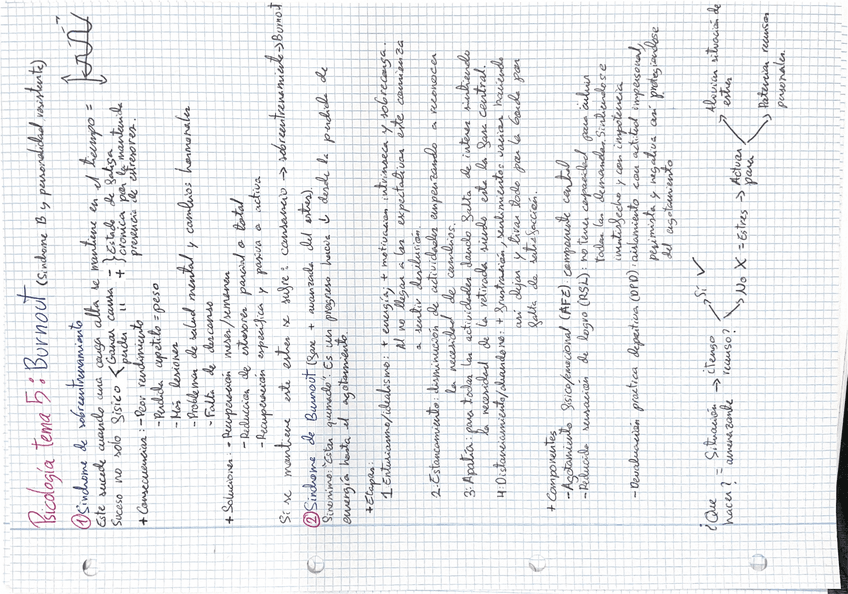 Psicología tema 5: Burnout (Sindrome B y personalidad resistente)
① Sindrome de sobreentrenamiento
Este sucede cuando una carga alta se mantiene en el tiempo =
Suceso no solo físico < Ganar causa - } Estado de fatiga
perder " + } crónica por la mantenida
presencia de estresores.
+ Consecuencias: - Peor rendimiento
- Perdida apetito = peso
- Más lesiones
- Problemas de salud mental y cambios hormonales
- Falta de descanso
+ Soluciones: - Recuperación meses/semanas
- Reducción de estresores parcial o total
- Recuperación especifica y pasiva o activa
Si se mantiene este estres se sufre: cansancio → sobreentrenamiento → Burnout
② Sindrome de Burnout (fase + avanzada del estres)
Sinonimo: "Estar quemado". Es un progreso hacia ↓ desde la perdida de
energia hasta el agotamiento.
+ Etapas:
1 Entusiasmo/idealismo: + energia, + motivacion intrinseca y sobrecarga.
Al no llegar a las expectativas este comienza
a sentir desilusión.
2: Estancamiento: disminución de actividades empezando a reconocer
la necesidad de cambios.
3: Apatía: para todas las actividades dando falta de interes sintiendo
la necesidad de la retirada siendo esta la fase central.
4: Distanciamiento/abandono: + frustración, sentimientos vacian haciendo
asi dejar y tirar todo por la borda por
falta de satisfacción.
+ Componentes
- Agotamiento físico/emocional (AFE): componente central
- Reducida sensación de logro (RSL): no tiene capacidad para cubrir
todas las demandas. Sintiendose
insatisfecho y con impotencia
- Devaluación practica deportiva (DPD): aislamiento con actitud impersonal,
pesimista y negativa asi protegiendose
del agotamiento
¿Que hacer? = Situación amenazante → ¿tengo recurso?
Si ✓
No X = Estres → Actuar para
Aliviar situación de estres
Potenciar recursos personales.